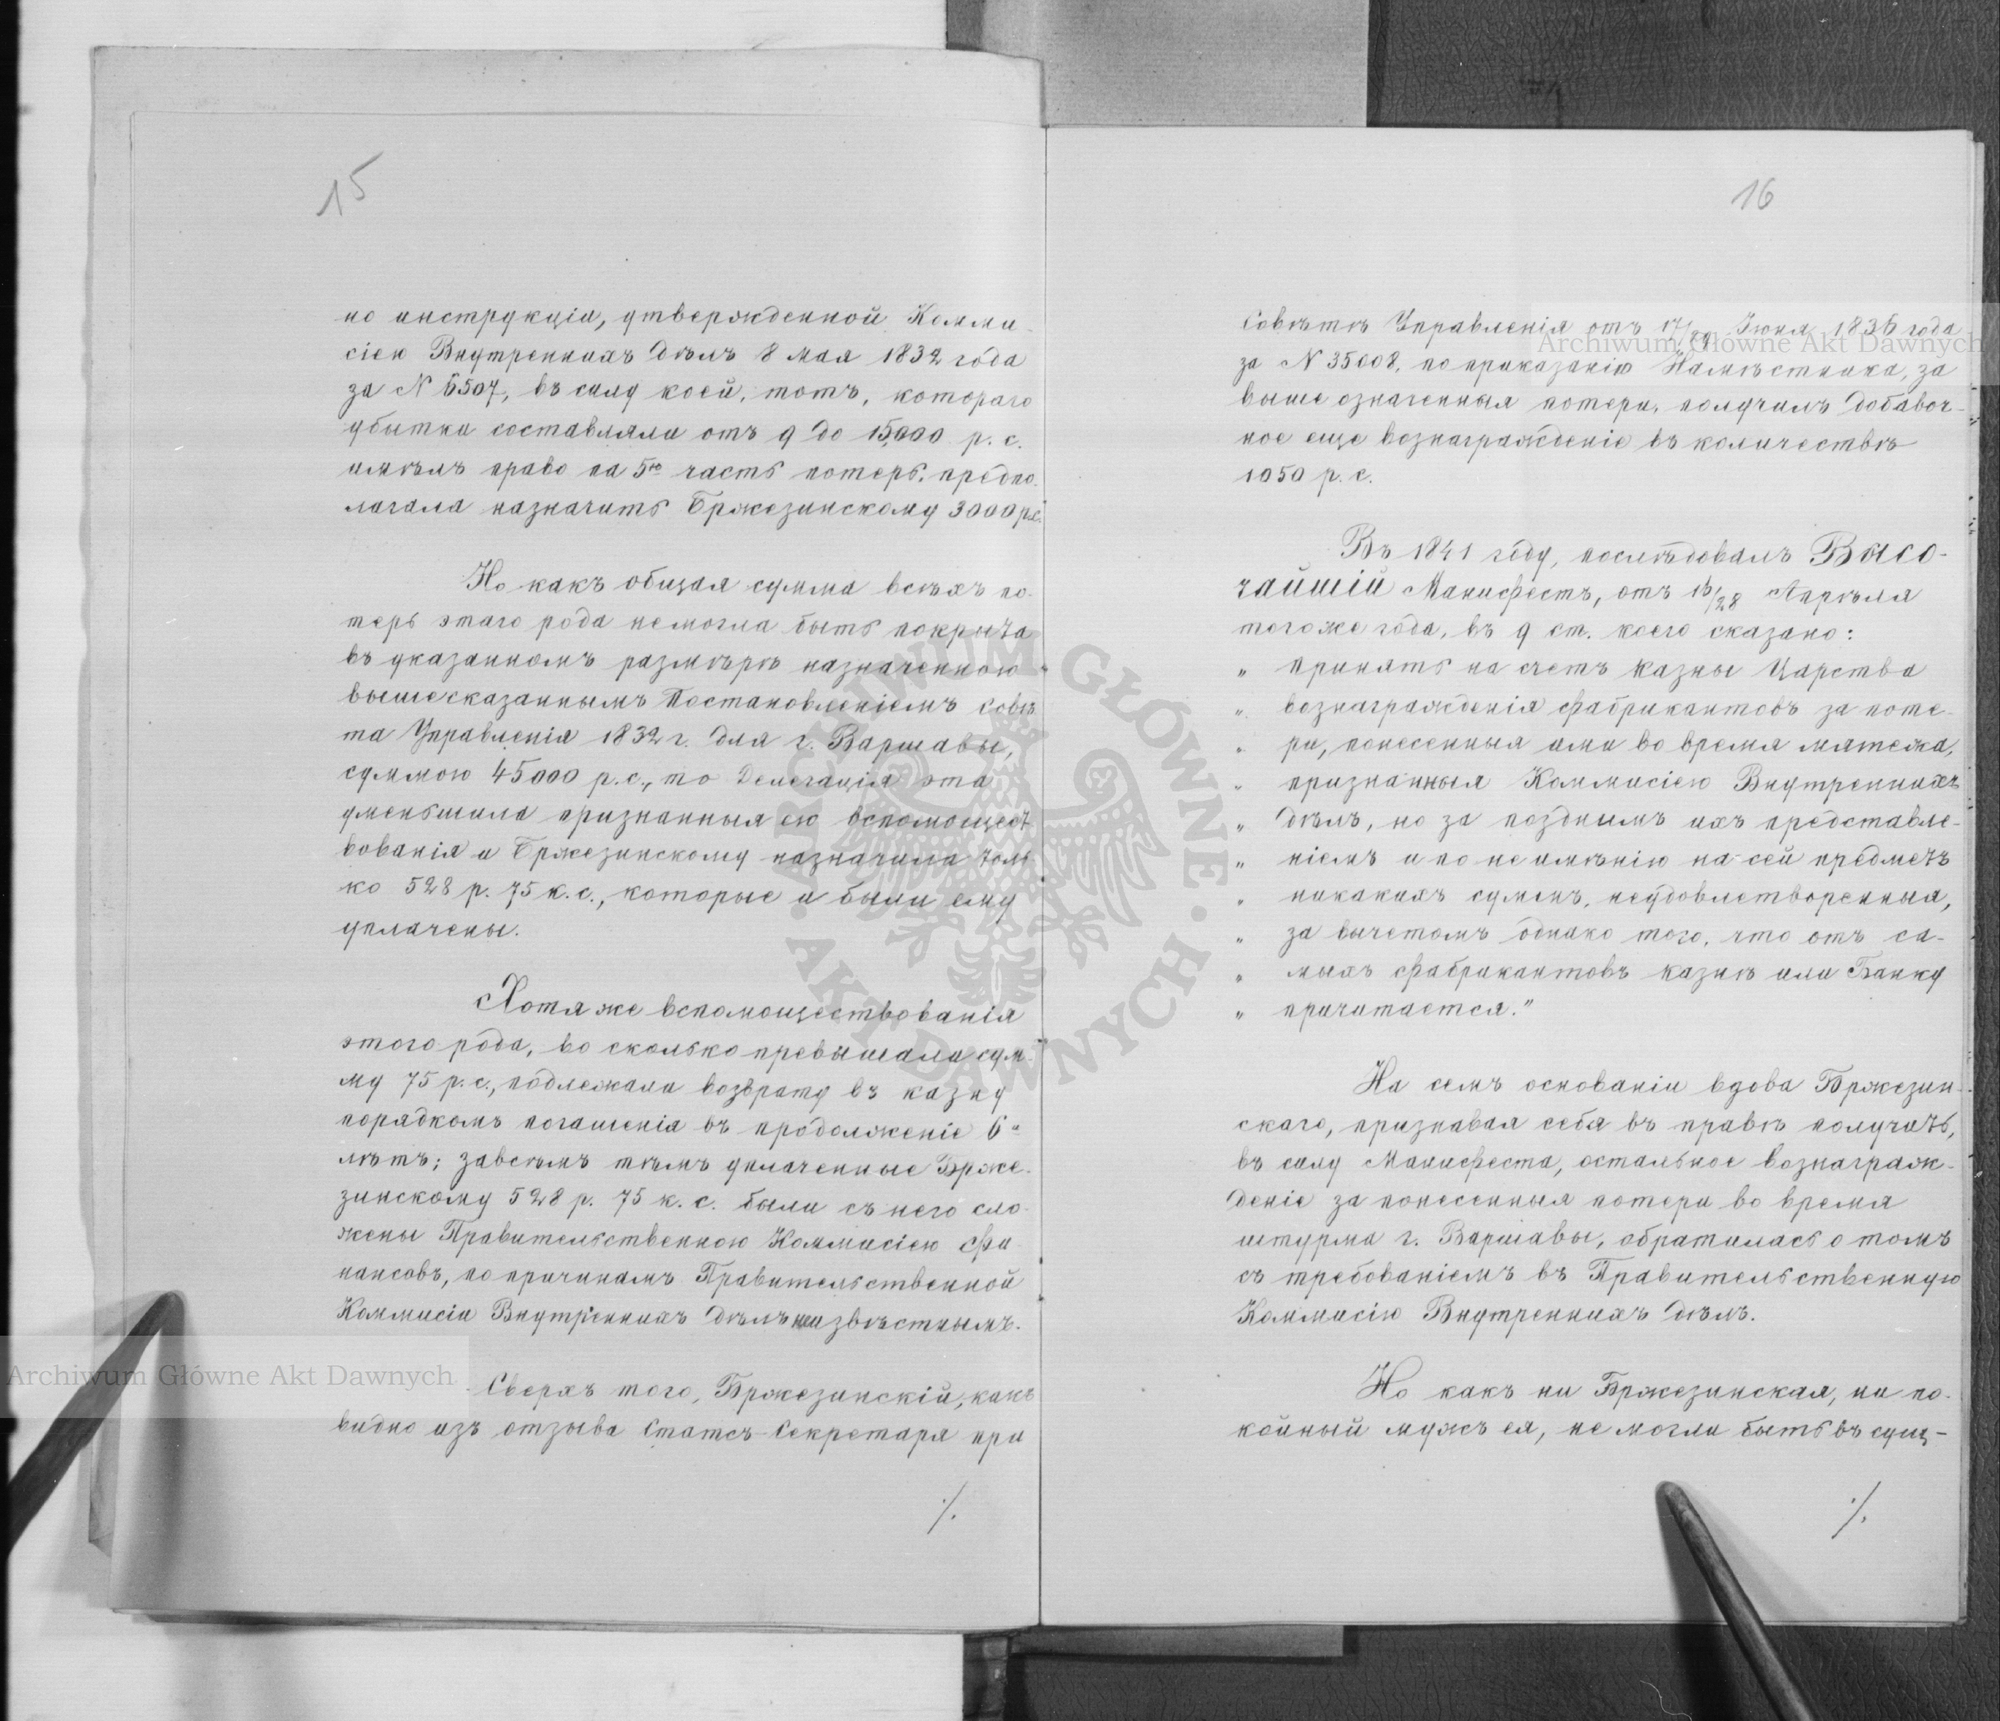 15
но инструкціи, утвержденной Комми-
сіею Внутреннихъ Дѣлъ 8 мая 1832 года
за N 6507, въ силу коей, тотъ, котораго
убытки составляли отъ 9 до 15,000 р. с.
имѣлъ право на 5ю часть потерь, предпо-
лагала назначить Бржезинскому 3000 р.с.
Но какъ общая сумма всѣхъ по-
терь этаго рода не могла быть покрыта
въ указанномъ размѣрѣ назначенною
вышесказаннымъ Постановленіемъ Совѣ
та Управленія 1832 г. для г. Варшавы,
суммою 45000 р. с., то Делегація эта
уменьшила признанныя ею вспомощест
вованія и Бржезинскому назначила толь
ко 528 р. 75 к. с., которые и были ему
уплачены.
Хотя же вспомоществованія
этого рода, во сколько превышали сум-
му 75 р. с., подлежали возврату въ казну
порядкомъ погашенія въ продолженіе 6и
лѣтъ; за всѣмъ тѣмъ уплаченные Брже-
зинскому 528 р. 75 к. с. были съ него сло-
жены Правительственною Коммисіею Фи
нансовъ, по причинамъ Правительственной
Коммисіи Внутреннихъ Дѣлъ неизвѣстнымъ.
Сверхъ того, Бржезинскій, какъ
видно изъ отзыва Статсъ-Секретаря при
./.
16
Совѣтѣ Управленія отъ 17/29 Іюня 1836 года
за N 35008, по приказанію Намѣстника, за
выше означенныя потери, получилъ добавоч-
ное еще вознагражденіе въ количествѣ
1050 р. с.
Въ 1841 году, послѣдовалъ Высо-
чайшій Манифестъ, отъ 16/28 Апрѣля
того же года, въ 9 ст. коего сказано:
„ принять на счетъ казны Царства
„ вознагражденія фабрикантовъ за поте-
„ ри, понесенныя ими во время мятежа,
„ признанныя Коммисіею Внутреннихъ
„ Дѣлъ, но за позднимъ ихъ представле-
„ ніемъ и по неимѣнію на сей предметъ
„ никакихъ суммъ, неудовлетворенныя,
„ за вычетомъ однако того, что отъ са-
„ мыхъ фабрикантовъ казнѣ или Банку
„ причитается."
На семъ основаніи вдова Бржезин-
скаго, признавая себя въ правѣ получить,
въ силу Манифеста, остальное вознаграж-
деніе за понесенныя потери во время
штурма г. Варшавы, обратилась о томъ
съ требованіемъ въ Правительственную
Коммисію Внутреннихъ Дѣлъ.
Но какъ ни Бржезинская, ни по-
койный мужъ ея, не могли быть въ сущ-
./.
ARCHIWUM GŁÓWNE AKT DAWNYCH
Archiwum Główne Akt Dawnych
Archiwum Główne Akt Dawnych